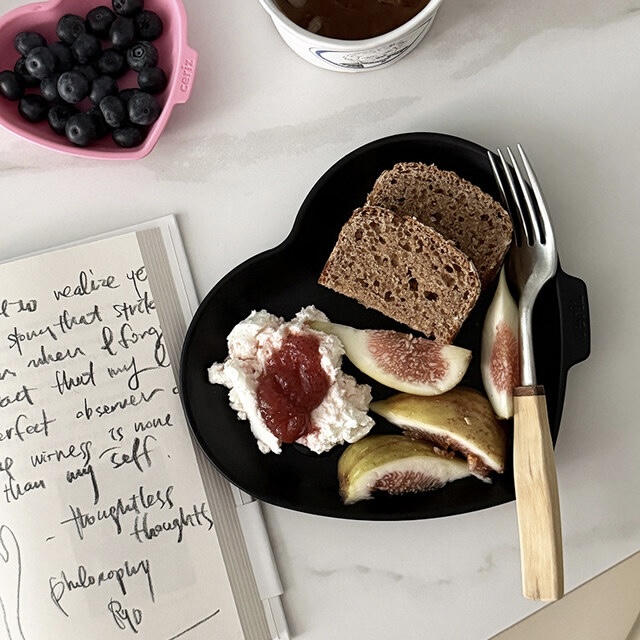 ceriz
to realize ye
story that
when I forg
act that my
erfect observer
witness is none
than my self.
- thoughtless
thoughts
philosophy